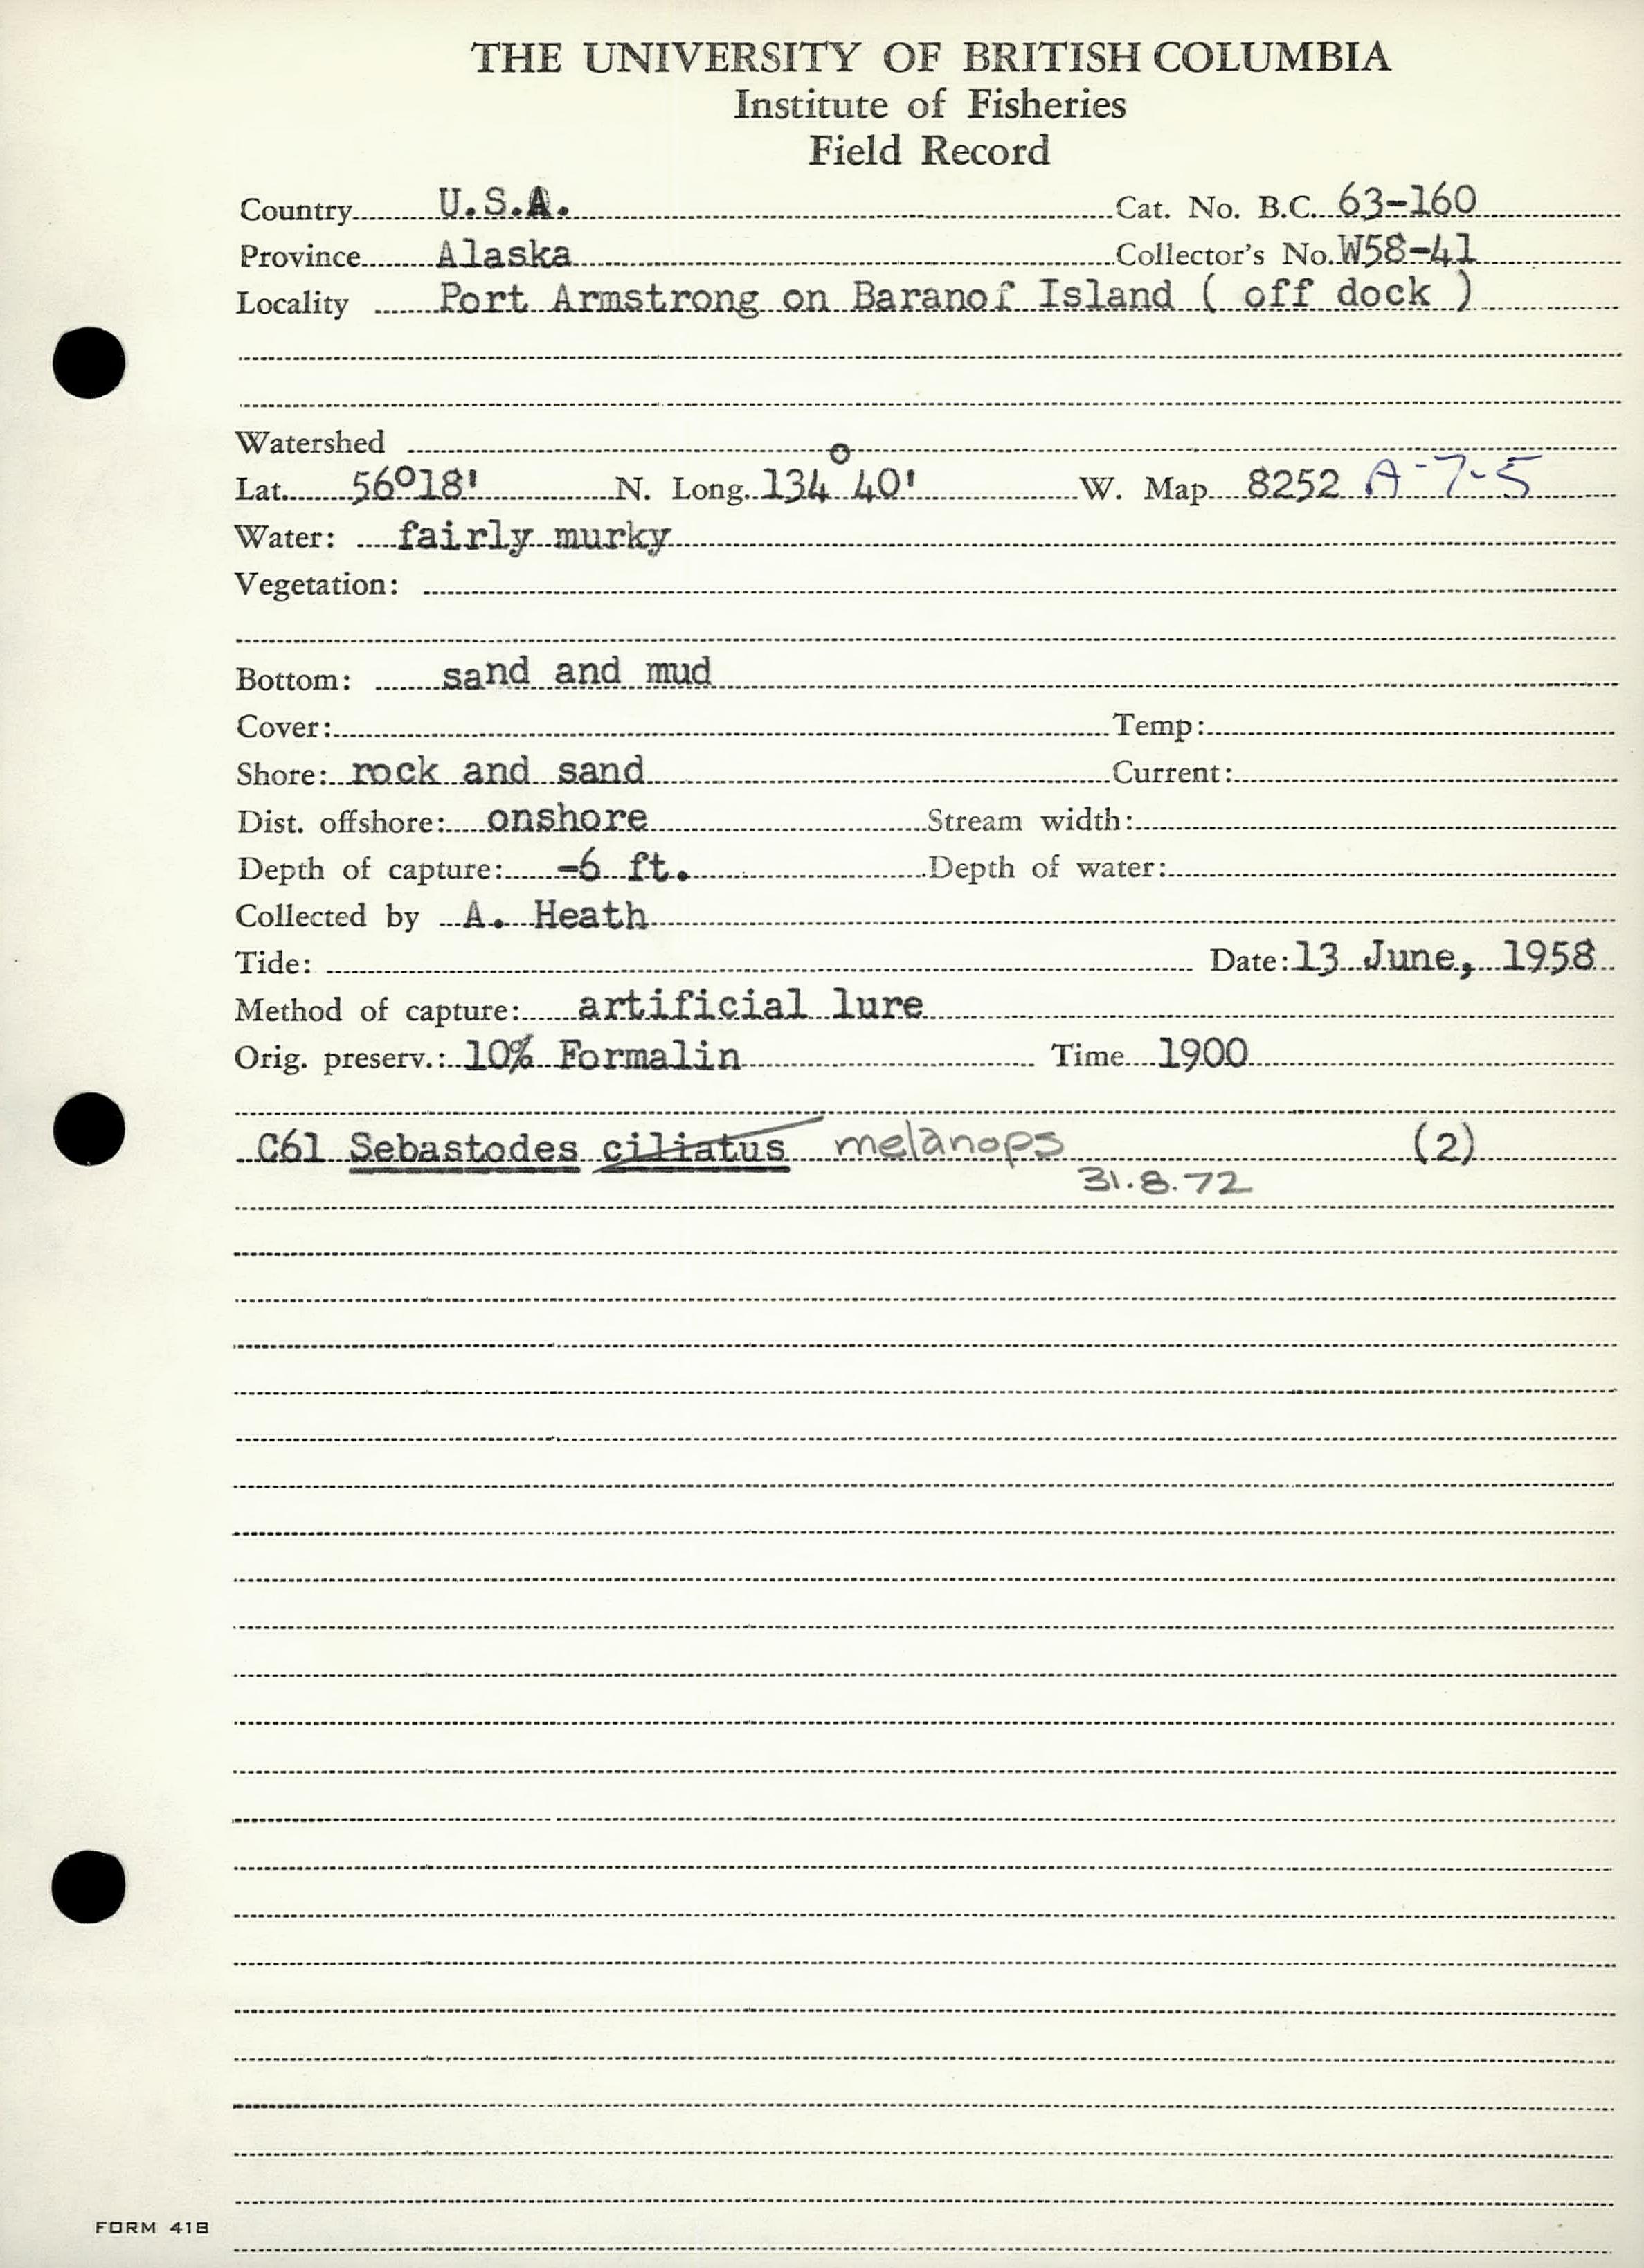 THE UNIVERSITY OF BRITISH COLUMBIA
Institute of Fisheries
Field Record
Country U.S.A. Cat. No. B.C. 63-160
Province Alaska Collector's No. W58-41
Locality Port Armstrong on Baranof Island ( off dock )
Watershed
Lat. 56°18' N. Long. 134°40' W. Map 8252 A-7-5
Water: fairly murky
Vegetation:
Bottom: sand and mud
Cover: Temp:
Shore: rock and sand Current:
Dist. offshore: onshore Stream width:
Depth of capture: -6 ft. Depth of water:
Collected by A. Heath
Tide: Date: 13 June, 1958
Method of capture: artificial lure
Orig. preserv.: 10% Formalin Time 1900
C61 Sebastodes ciliatus melanops (2)
31.8.72
FORM 418